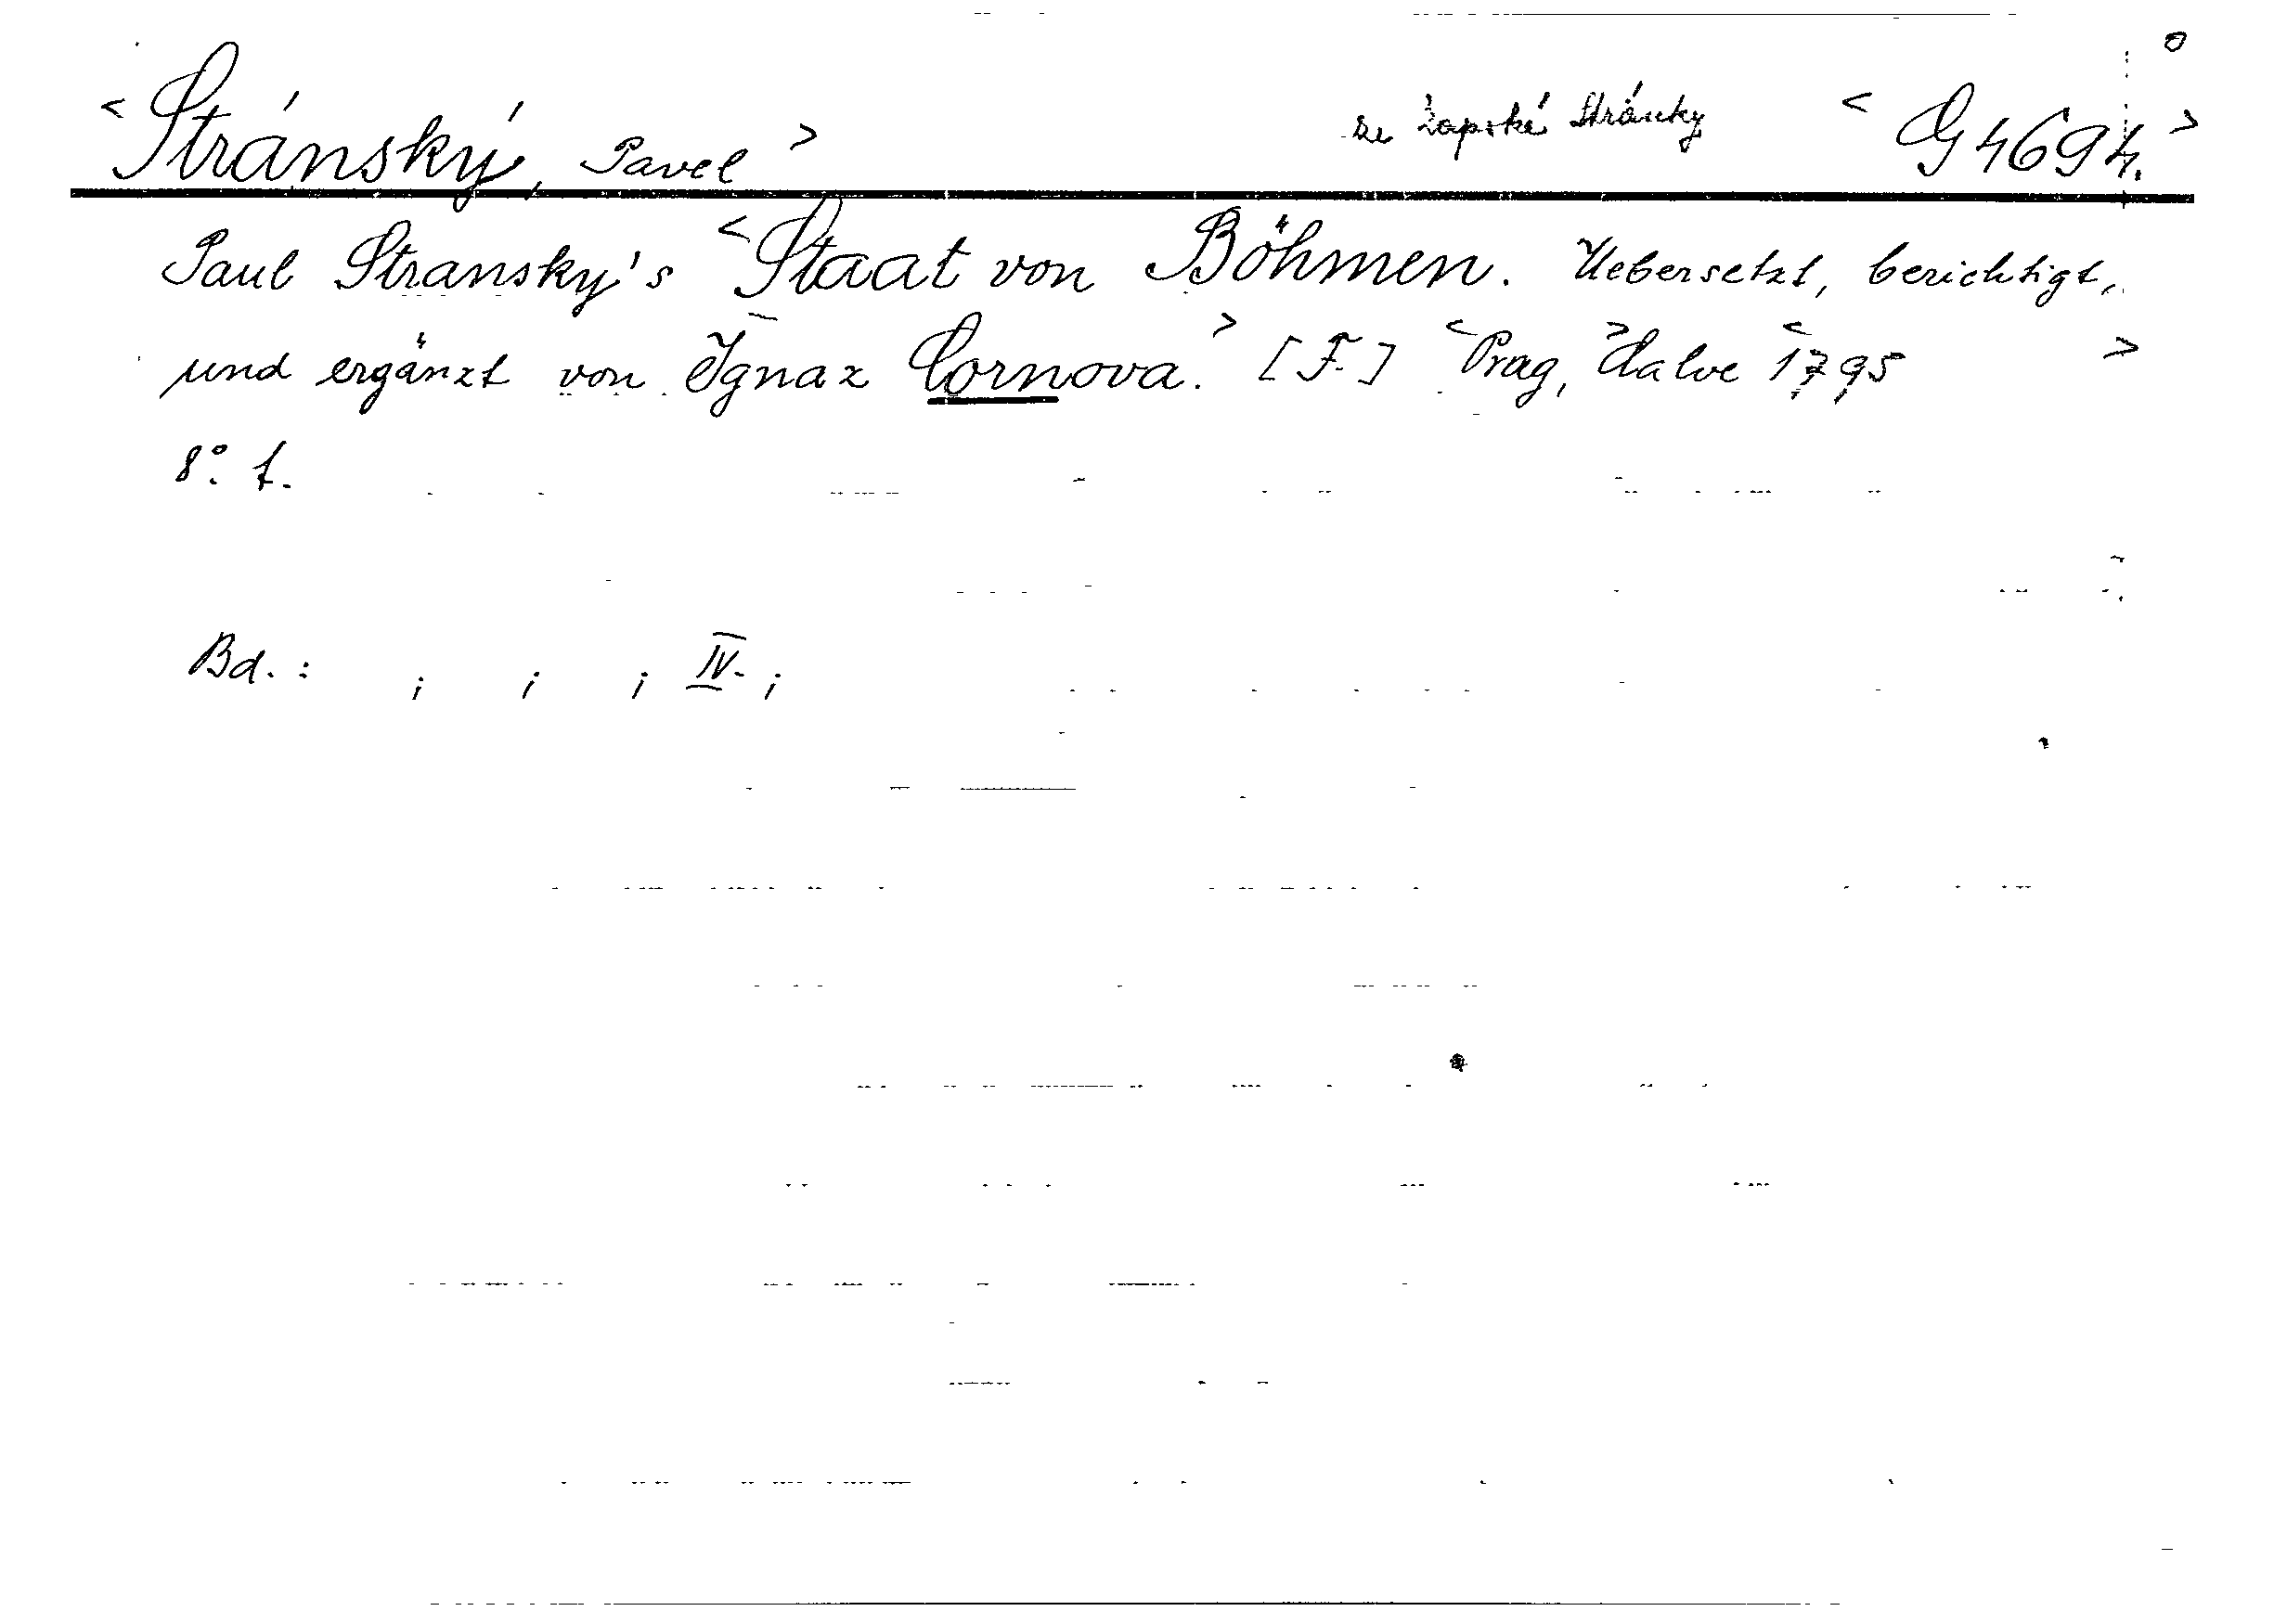 <Stránský, Pavel> ze Zapské Stránky <G 4694.>
Paul Stransky's <Staat von Böhmen. Uebersetzt, berichtigt,
und ergänzt von Ignaz Cornova.> [F.] <Prag,> Calve <1795>
8°. f.
Bd.: ; ; ; IV. ;